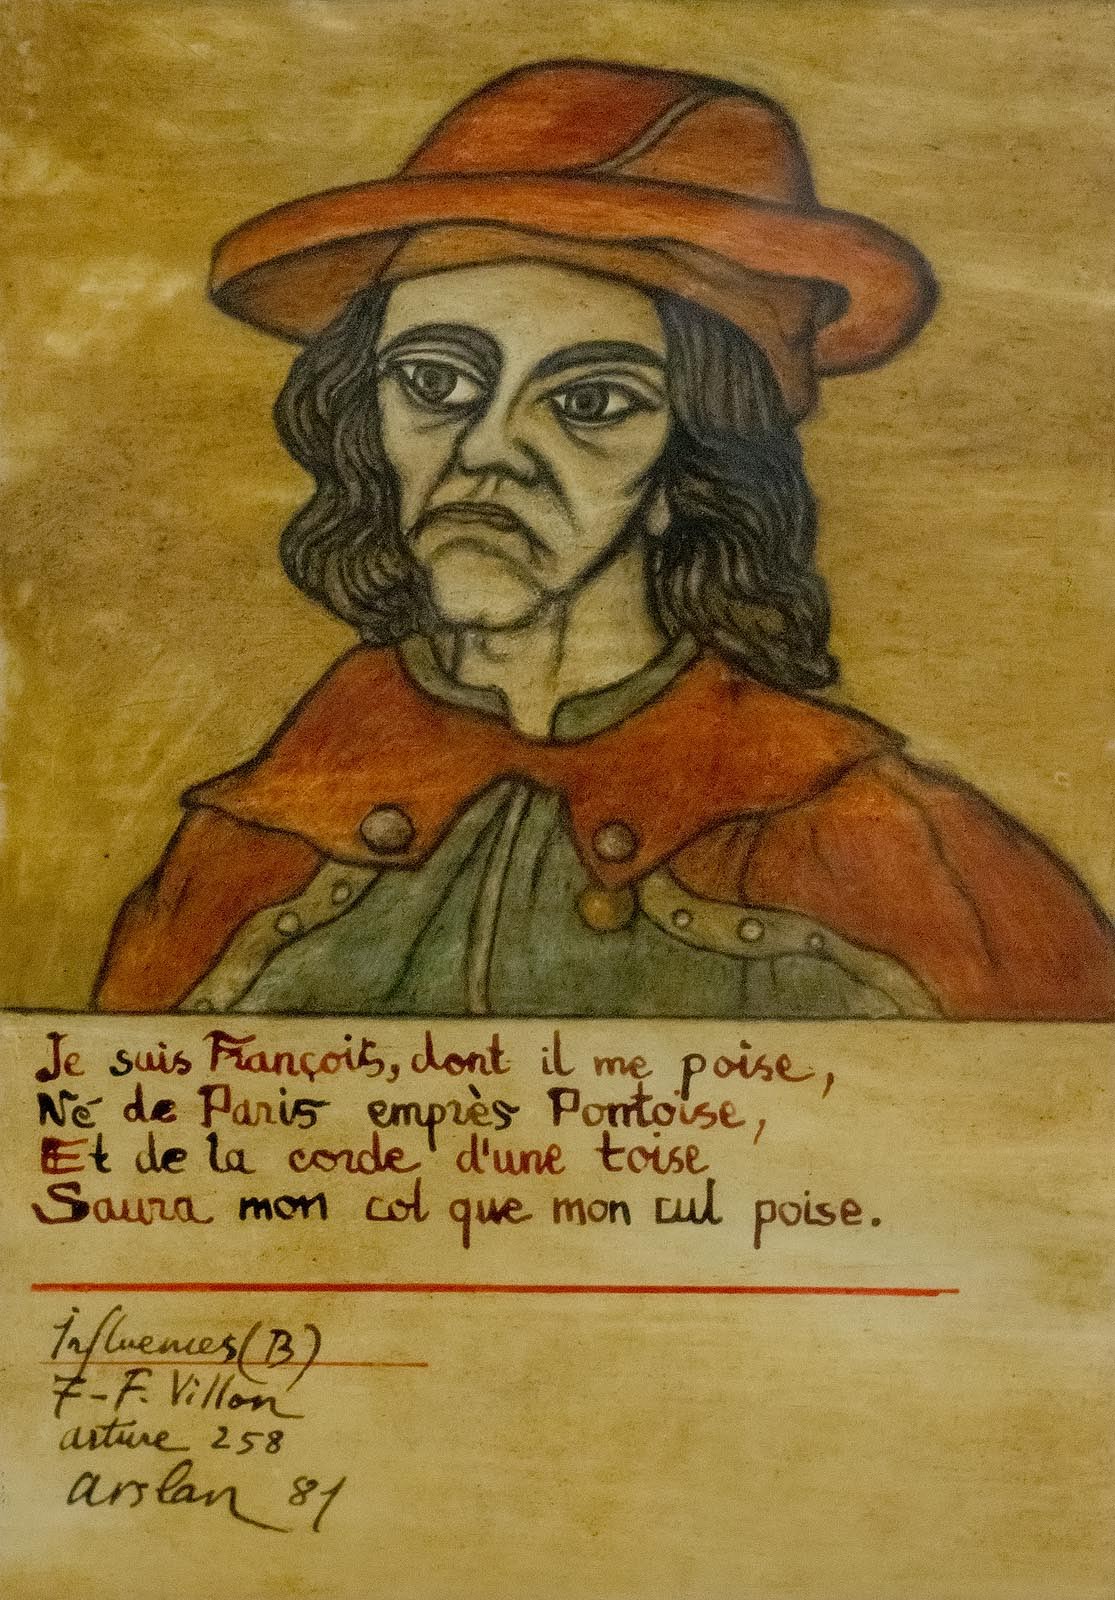 Je suis François, dont il me poise,
Né de Paris emprès Pontoise,
Et de la corde d'une toise
Saura mon col que mon cul poise.
Influences (B)
7-F. Villon
arture 258
arslan 81